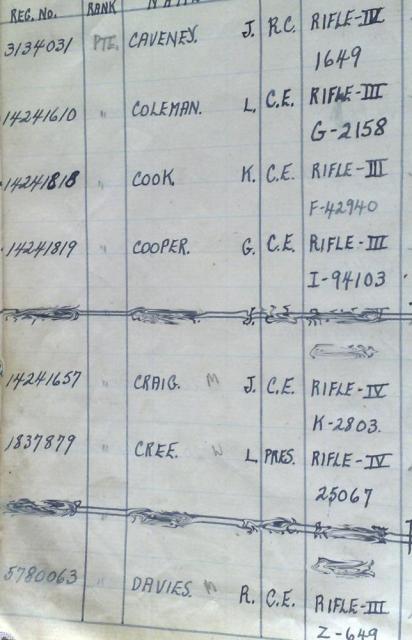 REG. No. RANK
3134031 PTE. CAVENEY. J. R.C. RIFLE-IV
1649
14241610 " COLEMAN. L. C.E. RIFLE-III
G-2158
14241818 " COOK. K. C.E. RIFLE-III
F-42940
14241819 " COOPER. G. C.E. RIFLE-III
I-94103
14241657 " CRAIG. M J. C.E. RIFLE-IV
K-2803.
1837879 " CREE. W L. PRES. RIFLE-IV
25067
5780063 " DAVIES. M R. C.E. RIFLE-III
Z-649